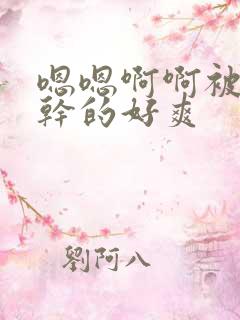 嗯嗯啊啊被
幹的好爽
劉阿八